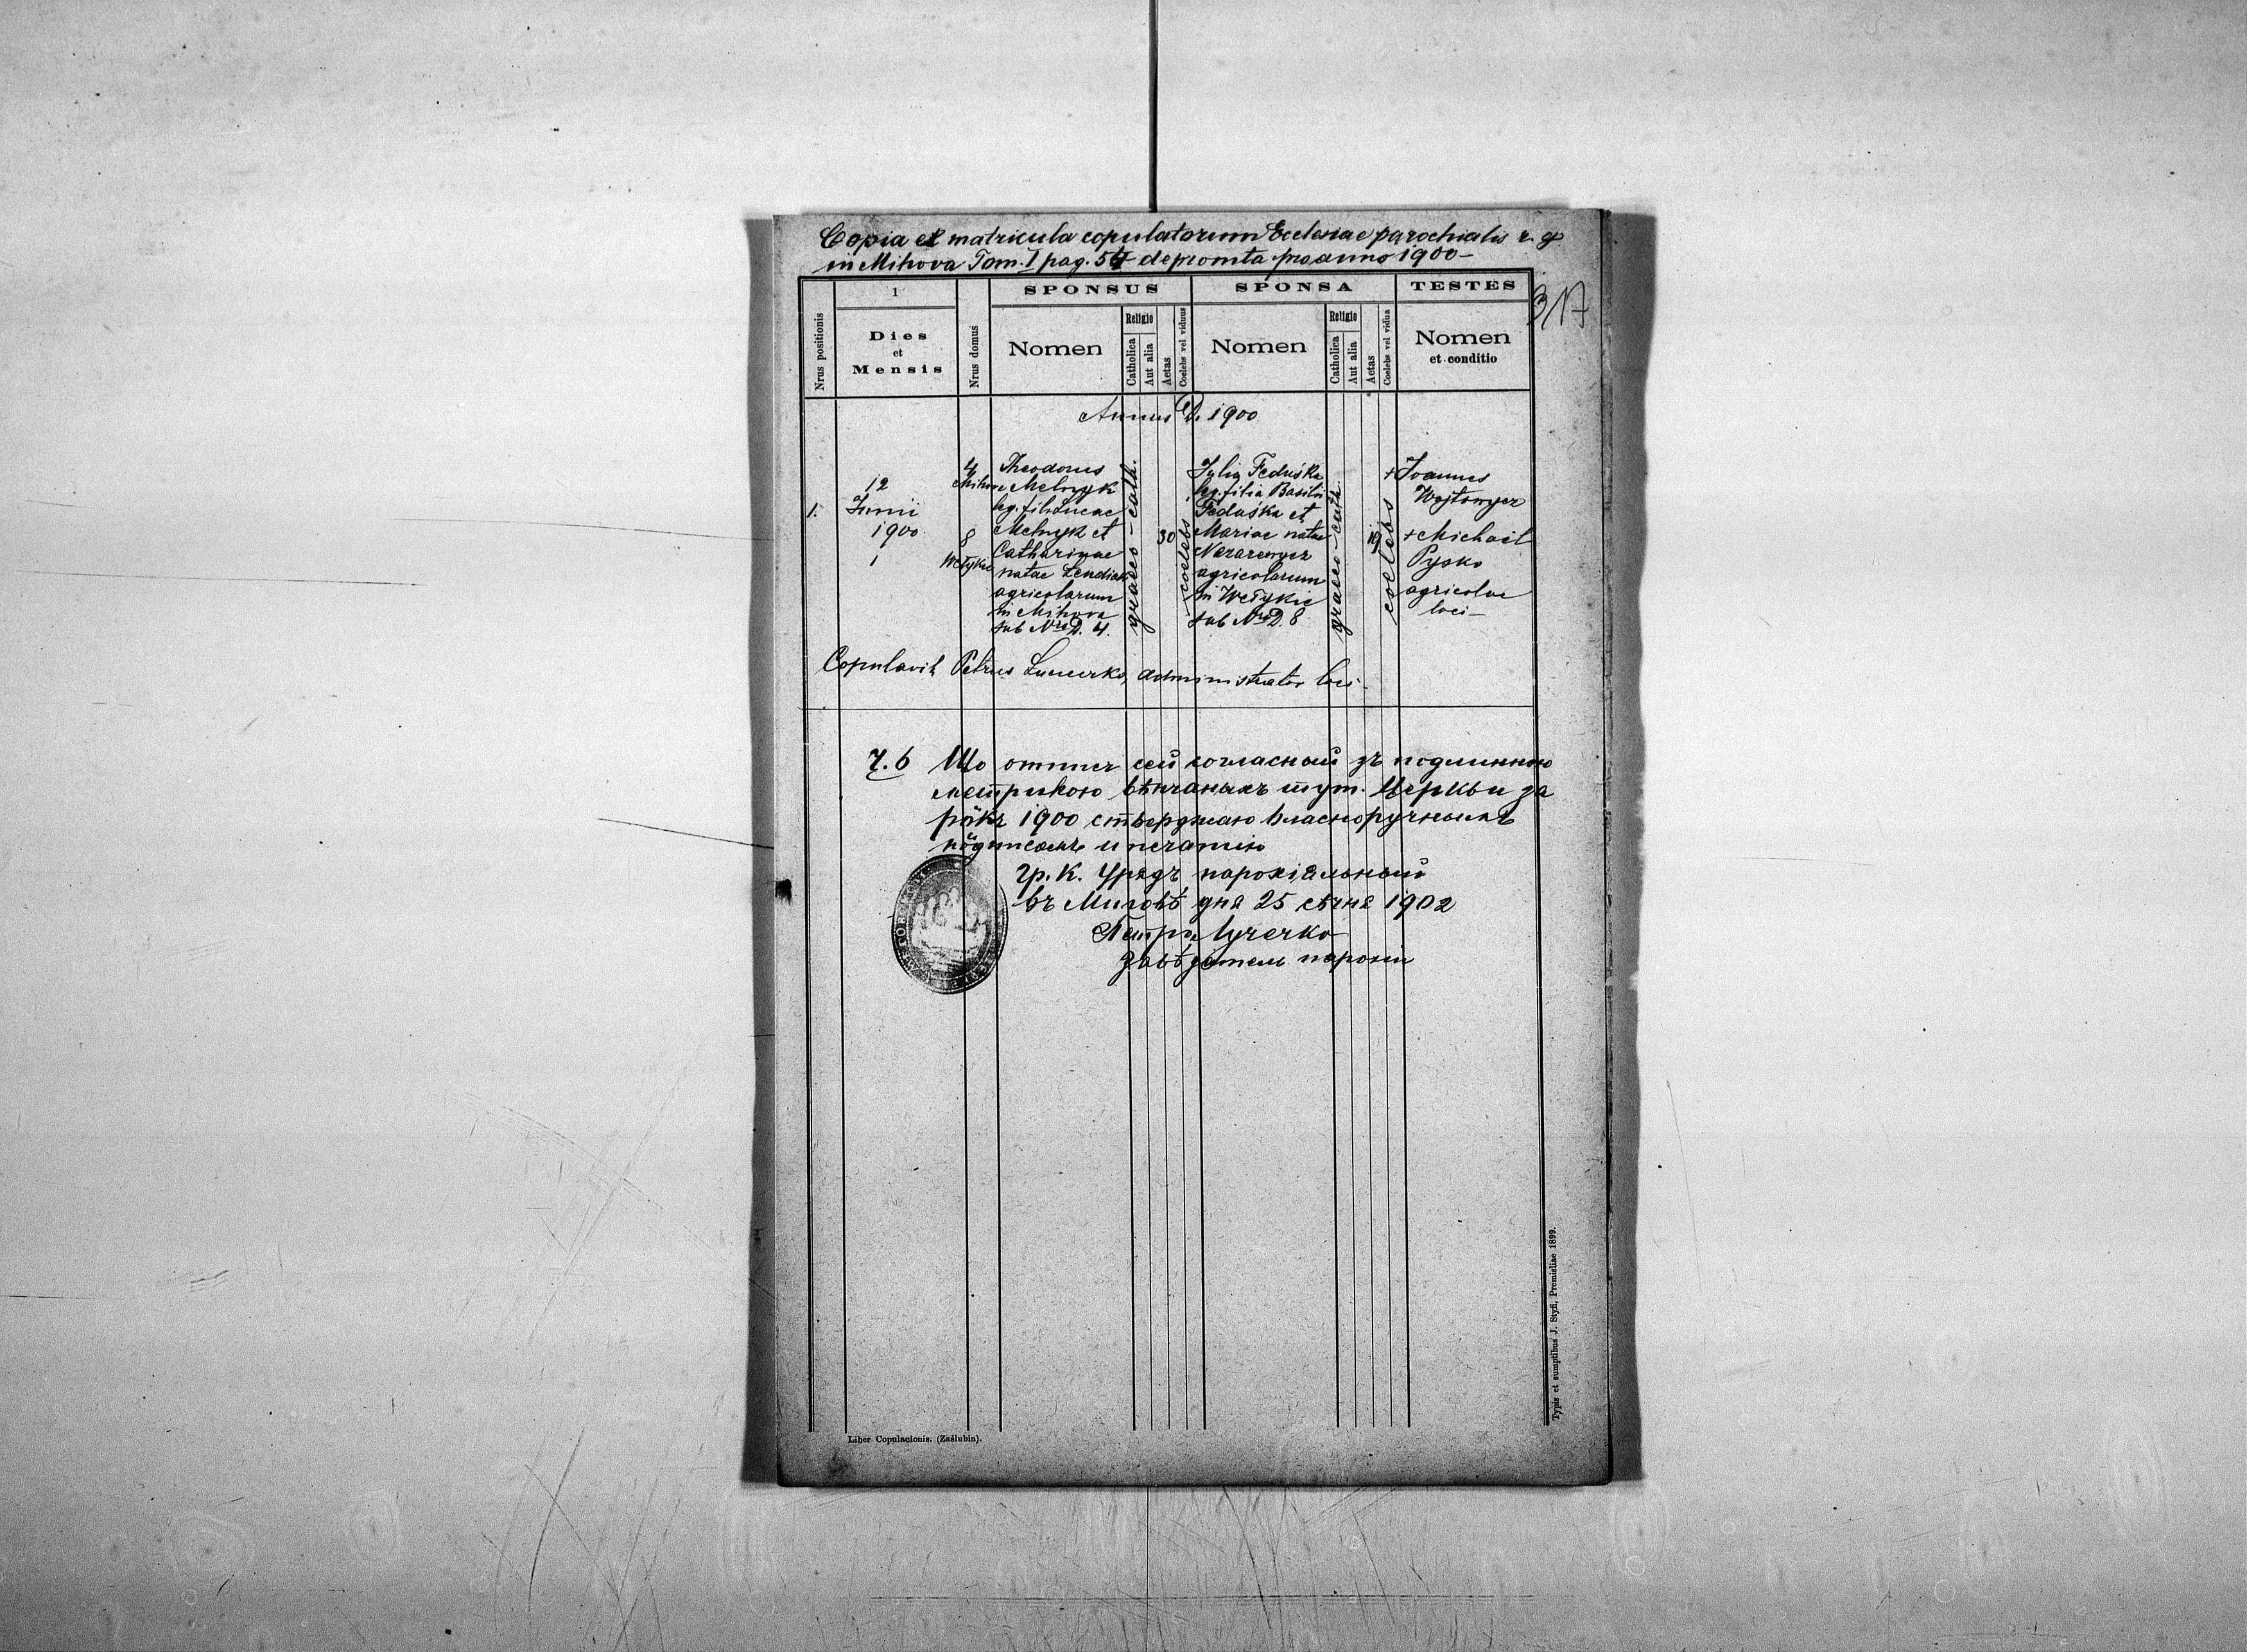 Copia ex matricula copulatorum Ecclesiae parochialis r. g
in Mihova Tom. I pag. 54 depromta pro anno 1900 –
317
Nrus positionis
1
Dies
et
Mensis
Nrus domus
SPONSUS
Nomen
Religio
Catholica
Aut alia
Aetas
Coelebs vel viduus
SPONSA
Nomen
Religio
Catholica
Aut alia
Aetas
Coelebs vel vidua
TESTES
Nomen
et conditio
Annus D. 1900
1.
12
Junii
1900
1
4
8
Theodorus
Melnyk
leg. fil. Lucae
Melnyk et
Catharinae
natae Lendiak
agricolarum
in Mihova
sub Nro D. 4.
graeco-cath.
30
coelebs
Julia Feduśka
leg. filia Basilii
Feduśka et
Mariae natae
Nazarewycz
agricolarum
in Wełykie
sub Nro D. 8
graeco-cath.
19
coelebs
+ Joannes
Wojtowycz
+ Michail
Pysko
agricolae
loci –
Copulavit Petrus administrator loci –
Ч. 6 Що оттиск сей согласный зъ подлинною
метрикою вѣнчаныхъ тут. Церкви за
рôкъ 1900 стверджаю власноручнымъ
пôдписомъ и печатію
Гр. К. Урядъ парохіяльный
въ Миговѣ дня 25 сѣчня 1902
Петро Лучечко
завѣдатель парохіи
Typis et sumptibus J. Styfi, Premisliae 1899.
Liber Copulacionis. (Zaślubin).